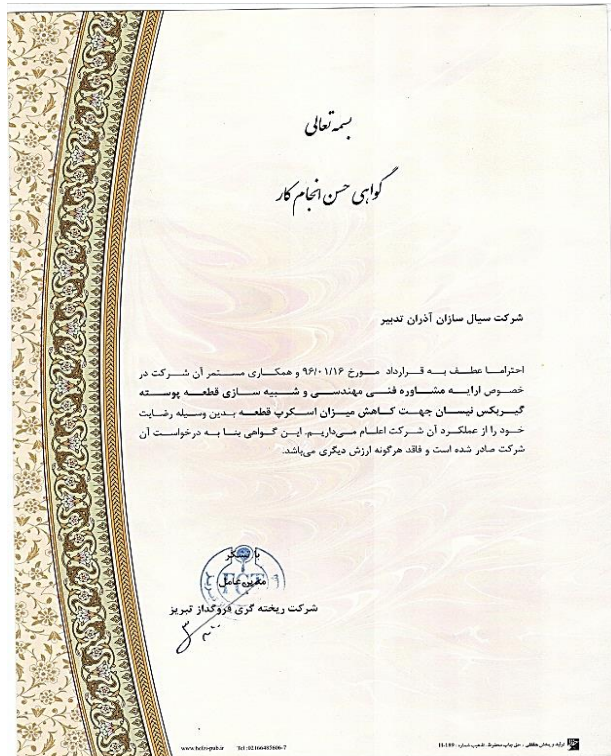 بسمه تعالی
گواهی حسن انجام کار
شرکت سیال سازان آذران تدبیر
احتراما عطف به قرارداد مورخ ۹۶/۰۱/۱۶ و همکاری مستمر آن شرکت در
خصوص ارایه مشاوره فنی مهندسی و شبیه سازی قطعه پوسته
گیربکس نیسان جهت کاهش میزان اسکرپ قطعه بدین وسیله رضایت
خود را از عملکرد آن شرکت اعلام می‌داریم. این گواهی بنا به درخواست آن
شرکت صادر شده است و فاقد هرگونه ارزش دیگری می‌باشد.
با تشکر
مدیرعامل
شرکت ریخته گری فروگداز تبریز
www.hefzi-pub.ir Tel:02166485606-7
تولید و پخش حافظی - حق چاپ محفوظ. تذهیب شماره: H-180